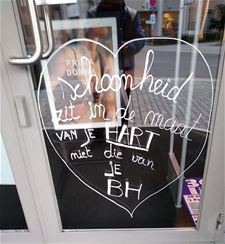 PRI
DON
schoonheid
zit in de maat
VAN JE HART
niet die van
JE
BH